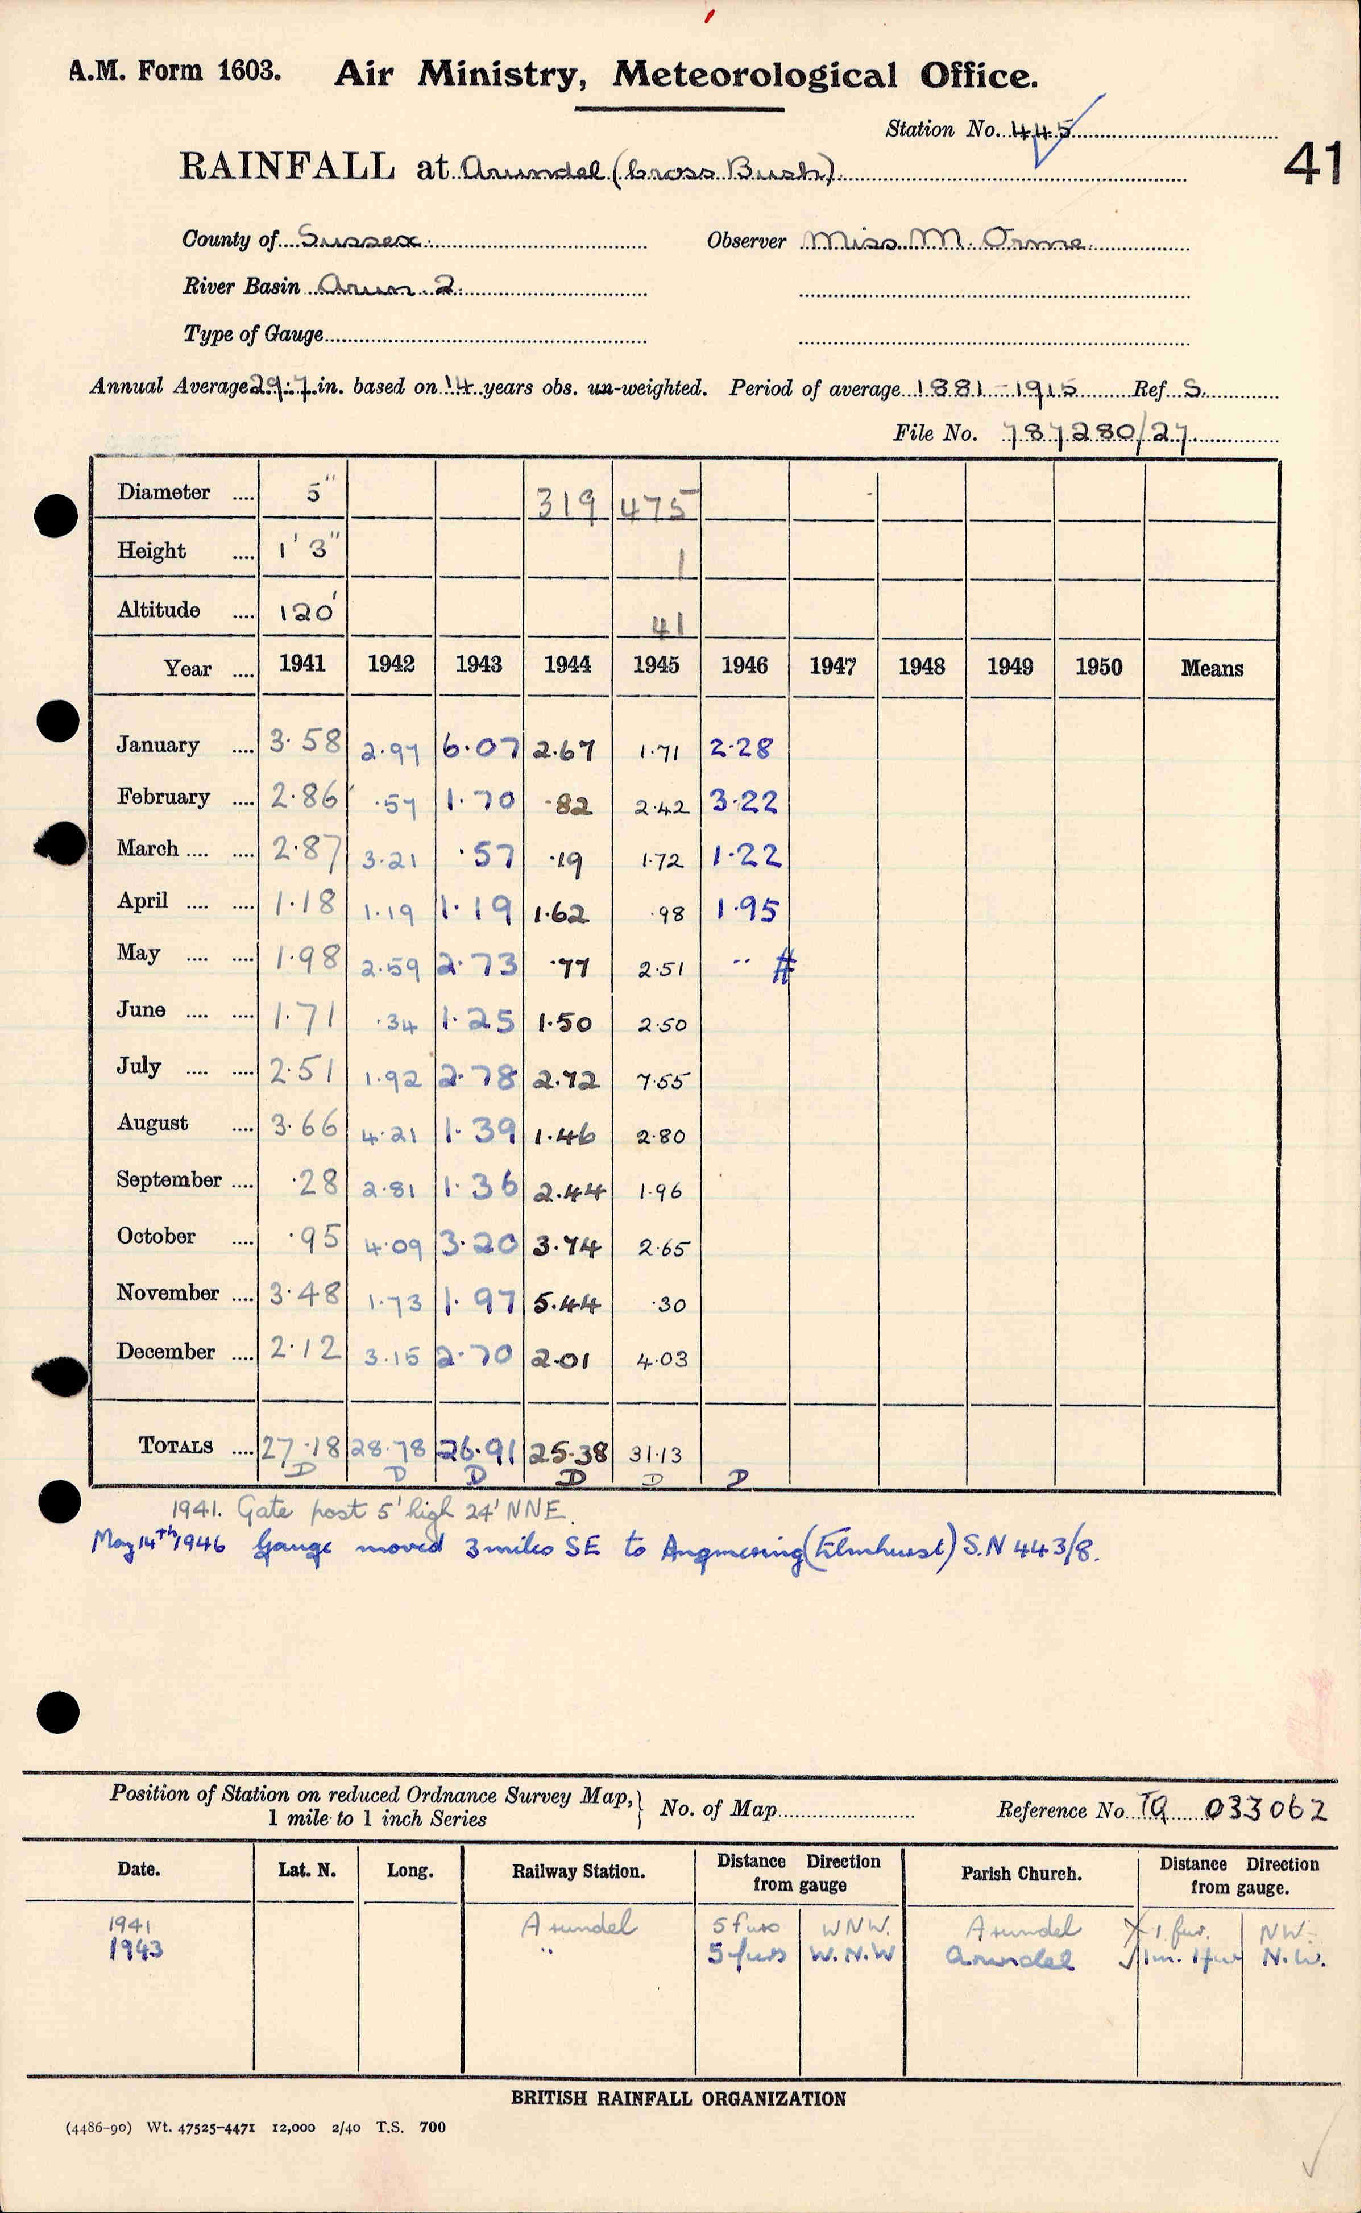 A.M. Form 1603. Air Ministry, Meteorological Office.
Station No. 445
RAINFALL at Arundel (Cross Bush) 41
County of Sussex. Observer Miss M. Orme.
River Basin Arun 2.
Type of Gauge
Annual Average 29.7 in. based on 14 years obs. un-weighted. Period of average 1881-1915 Ref S.
File No. 787280/27
Diameter .... 5" 319 475
Height .... 1' 3" 1
Altitude .... 120' 41
Year .... 1941 1942 1943 1944 1945 1946 1947 1948 1949 1950 Means
January .... 3.58 2.97 6.07 2.67 1.71 2.28
February .... 2.86 .57 1.70 .82 2.42 3.22
March .... .... 2.87 3.21 .57 .19 1.72 1.22
April .... .... 1.18 1.19 1.19 1.62 .98 1.95
May .... .... 1.98 2.59 2.73 .77 2.51 .. #
June .... .... 1.71 .34 1.25 1.50 2.50
July .... .... 2.51 1.92 2.78 2.72 7.55
August .... 3.66 4.21 1.39 1.46 2.80
September .... .28 2.81 1.36 2.44 1.96
October .... .95 4.09 3.20 3.74 2.65
November .... 3.48 1.73 1.97 5.44 .30
December .... 2.12 3.15 2.70 2.01 4.03
TOTALS .... 27.18 28.78 26.91 25.38 31.13
D D D D D D
1941. Gate post 5' high 24' NNE.
May 14th 1946 Gauge moved 3 miles SE to Angmering (Elmhurst) S.N 443/8.
Position of Station on reduced Ordnance Survey Map, } No. of Map Reference No. TQ 033062
1 mile to 1 inch Series
Date. Lat. N. Long. Railway Station. Distance Direction from gauge Parish Church. Distance Direction from gauge.
1941 Arundel 5 furs WNW. Arundel 1. fur. NW.
1943 " 5 furs W.N.W Arundel 1m. 1 fur N.W.
BRITISH RAINFALL ORGANIZATION
(4486-90) Wt. 47525-4471 12,000 2/40 T.S. 700